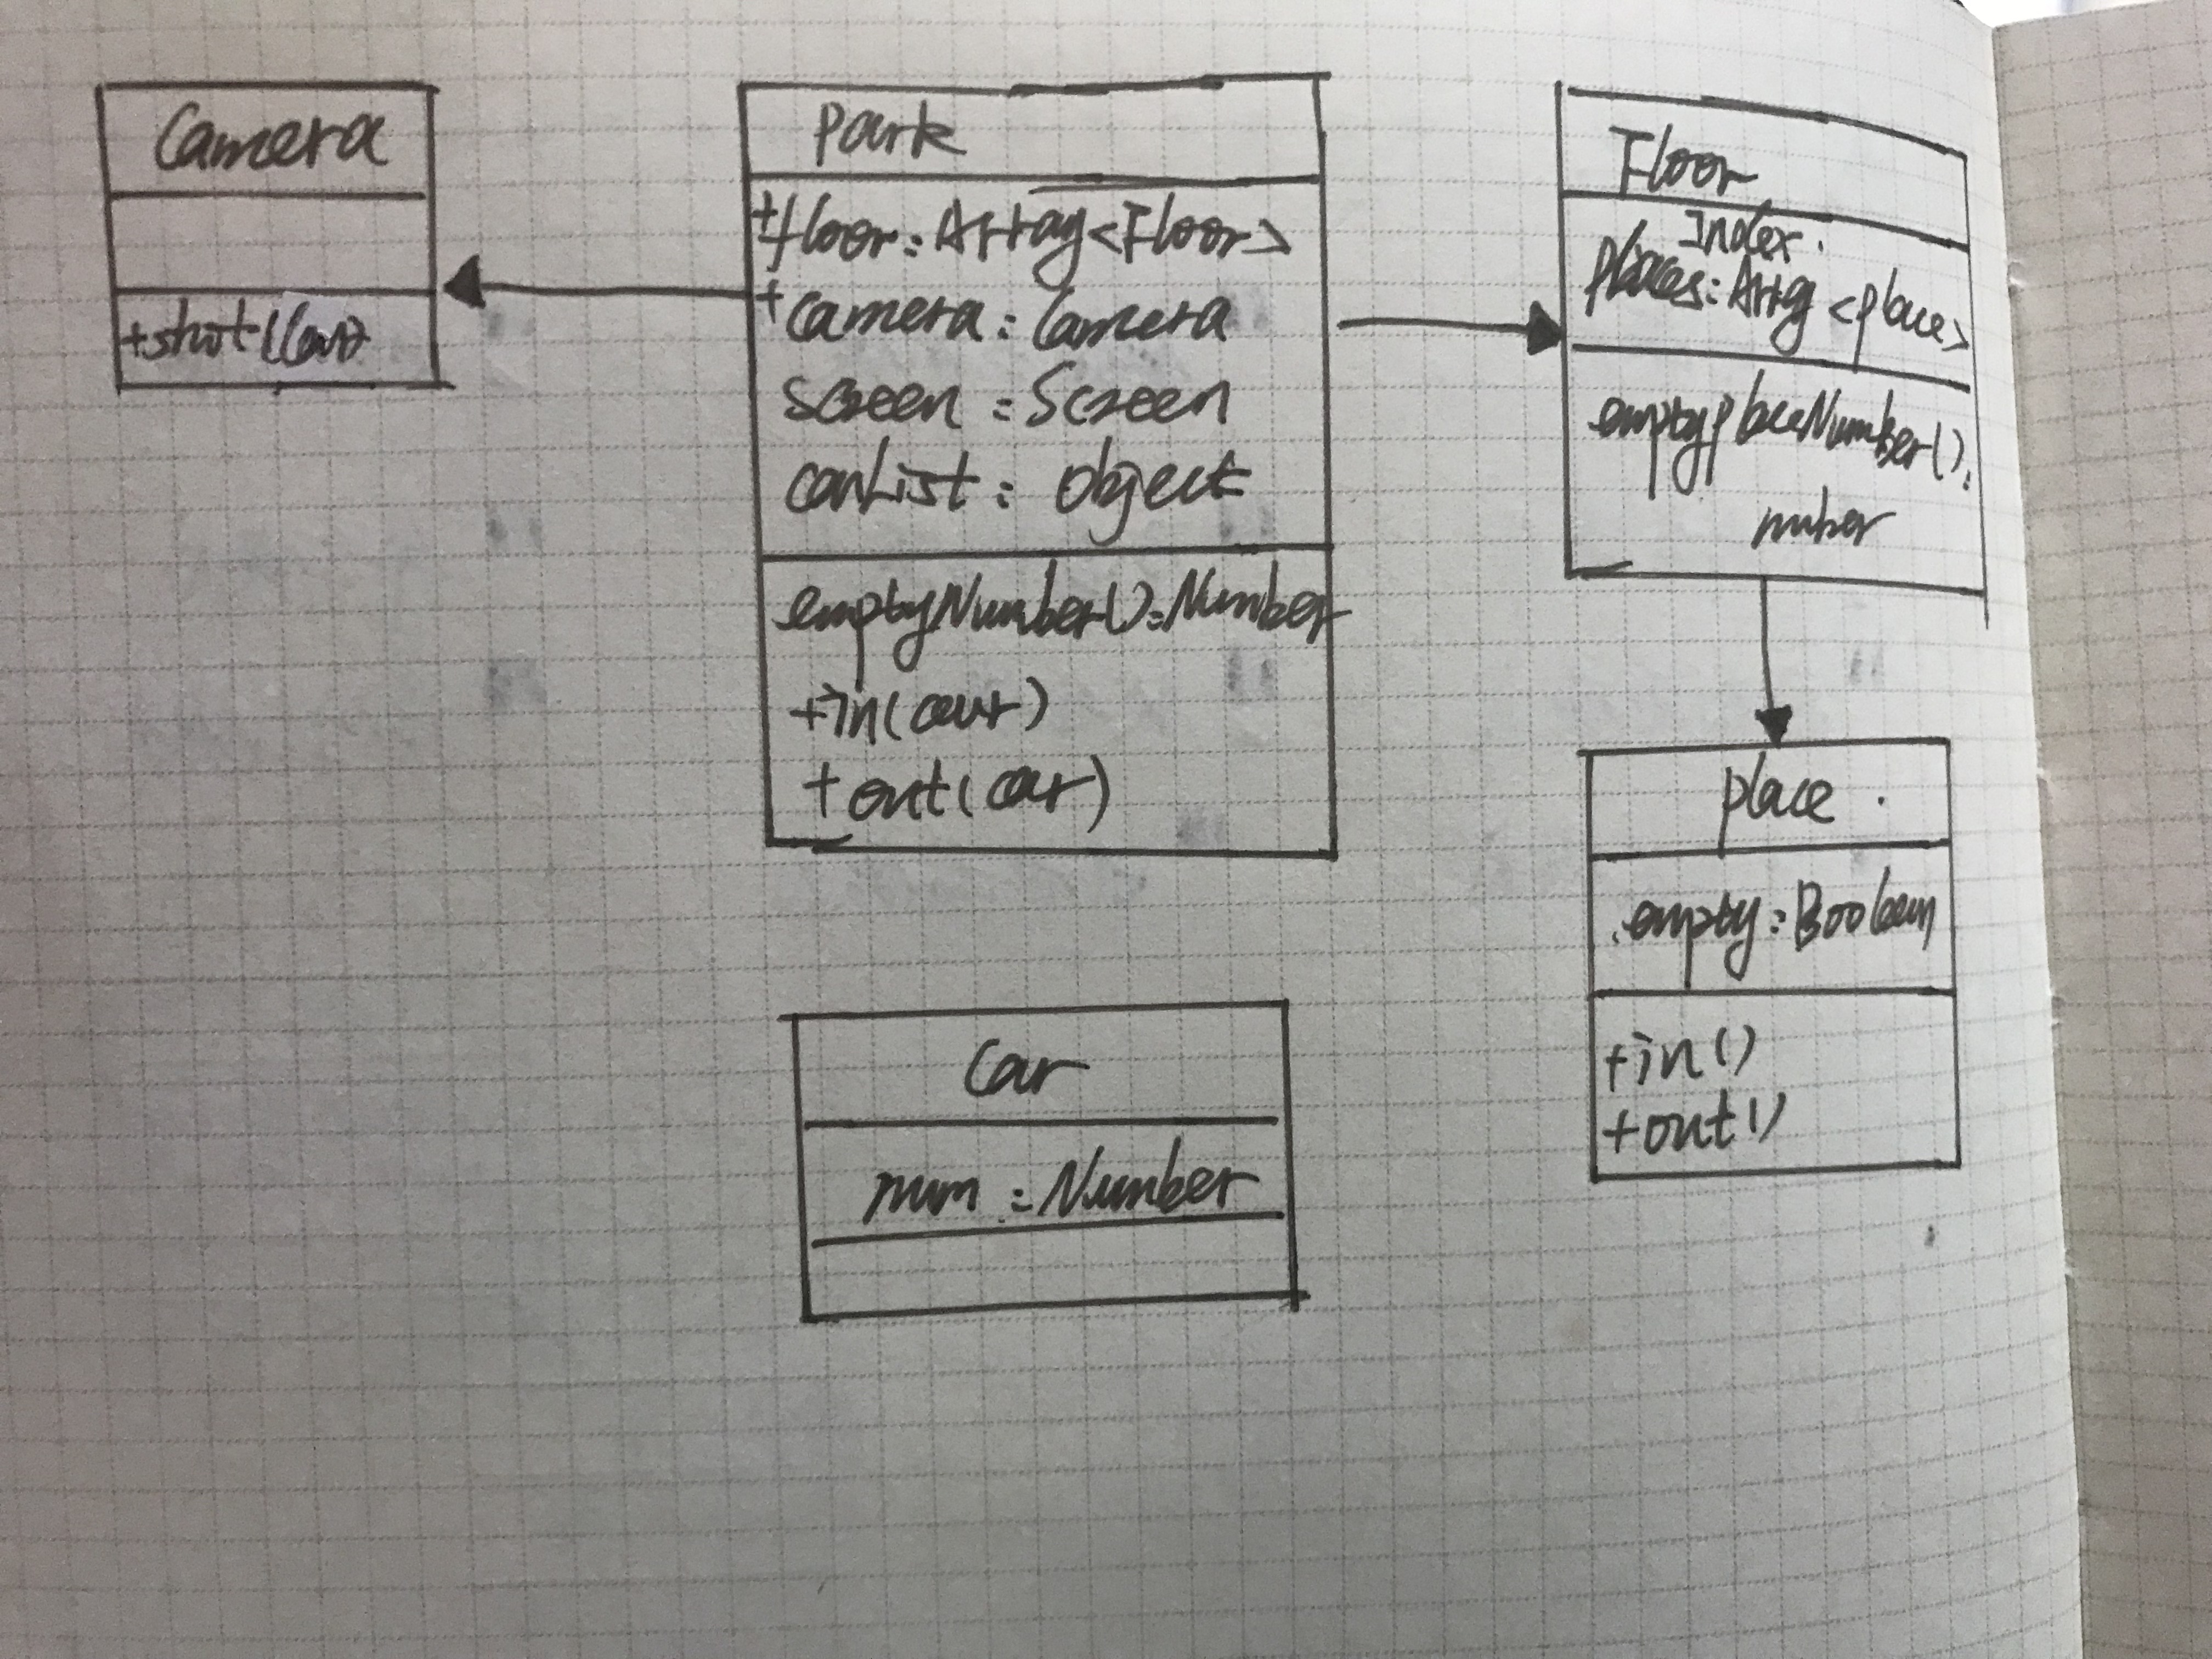 Camera
+shot(Car)
Park
+floor:Array<Floor>
+camera:Camera
screen:Screen
carList:Object
emptyNumber():Number
+in(car)
+out(car)
Floor
Index
places:Array<place>
emptyplaceNumber():
number
place
empty:Boolean
+in()
+out()
Car
num:Number